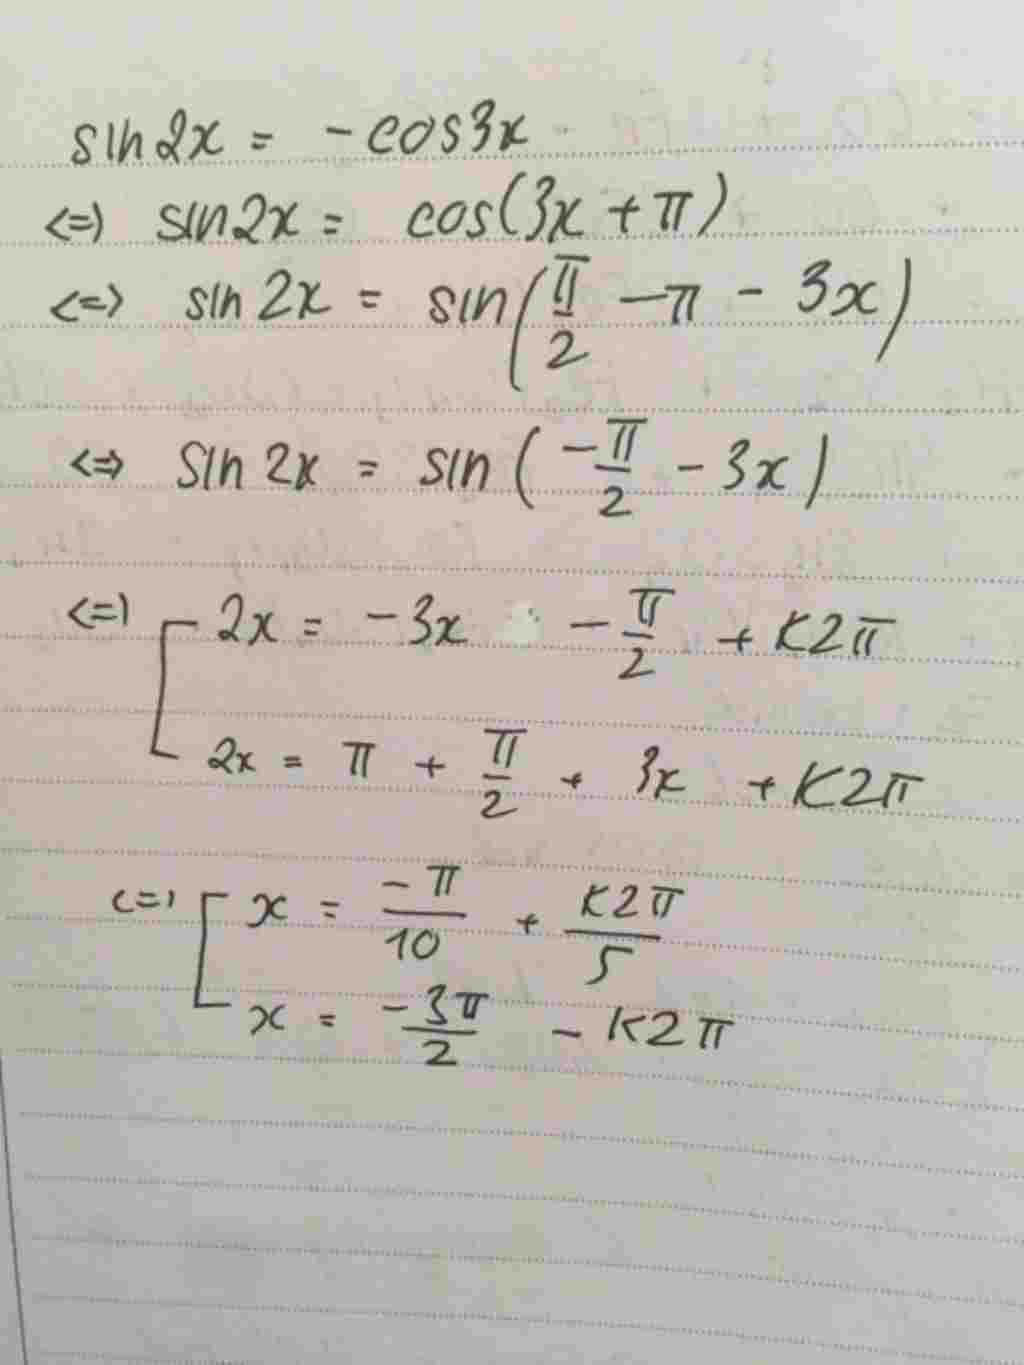 sin2x = -cos3x
<=> sin2x = cos(3x + π)
<=> sin2x = sin(π/2 - π - 3x)
<=> sin2x = sin(-π/2 - 3x)
<=> [ 2x = -3x - π/2 + K2π
2x = π + π/2 + 3x + K2π
<=> [ x = -π/10 + K2π/5
x = -3π/2 - K2π